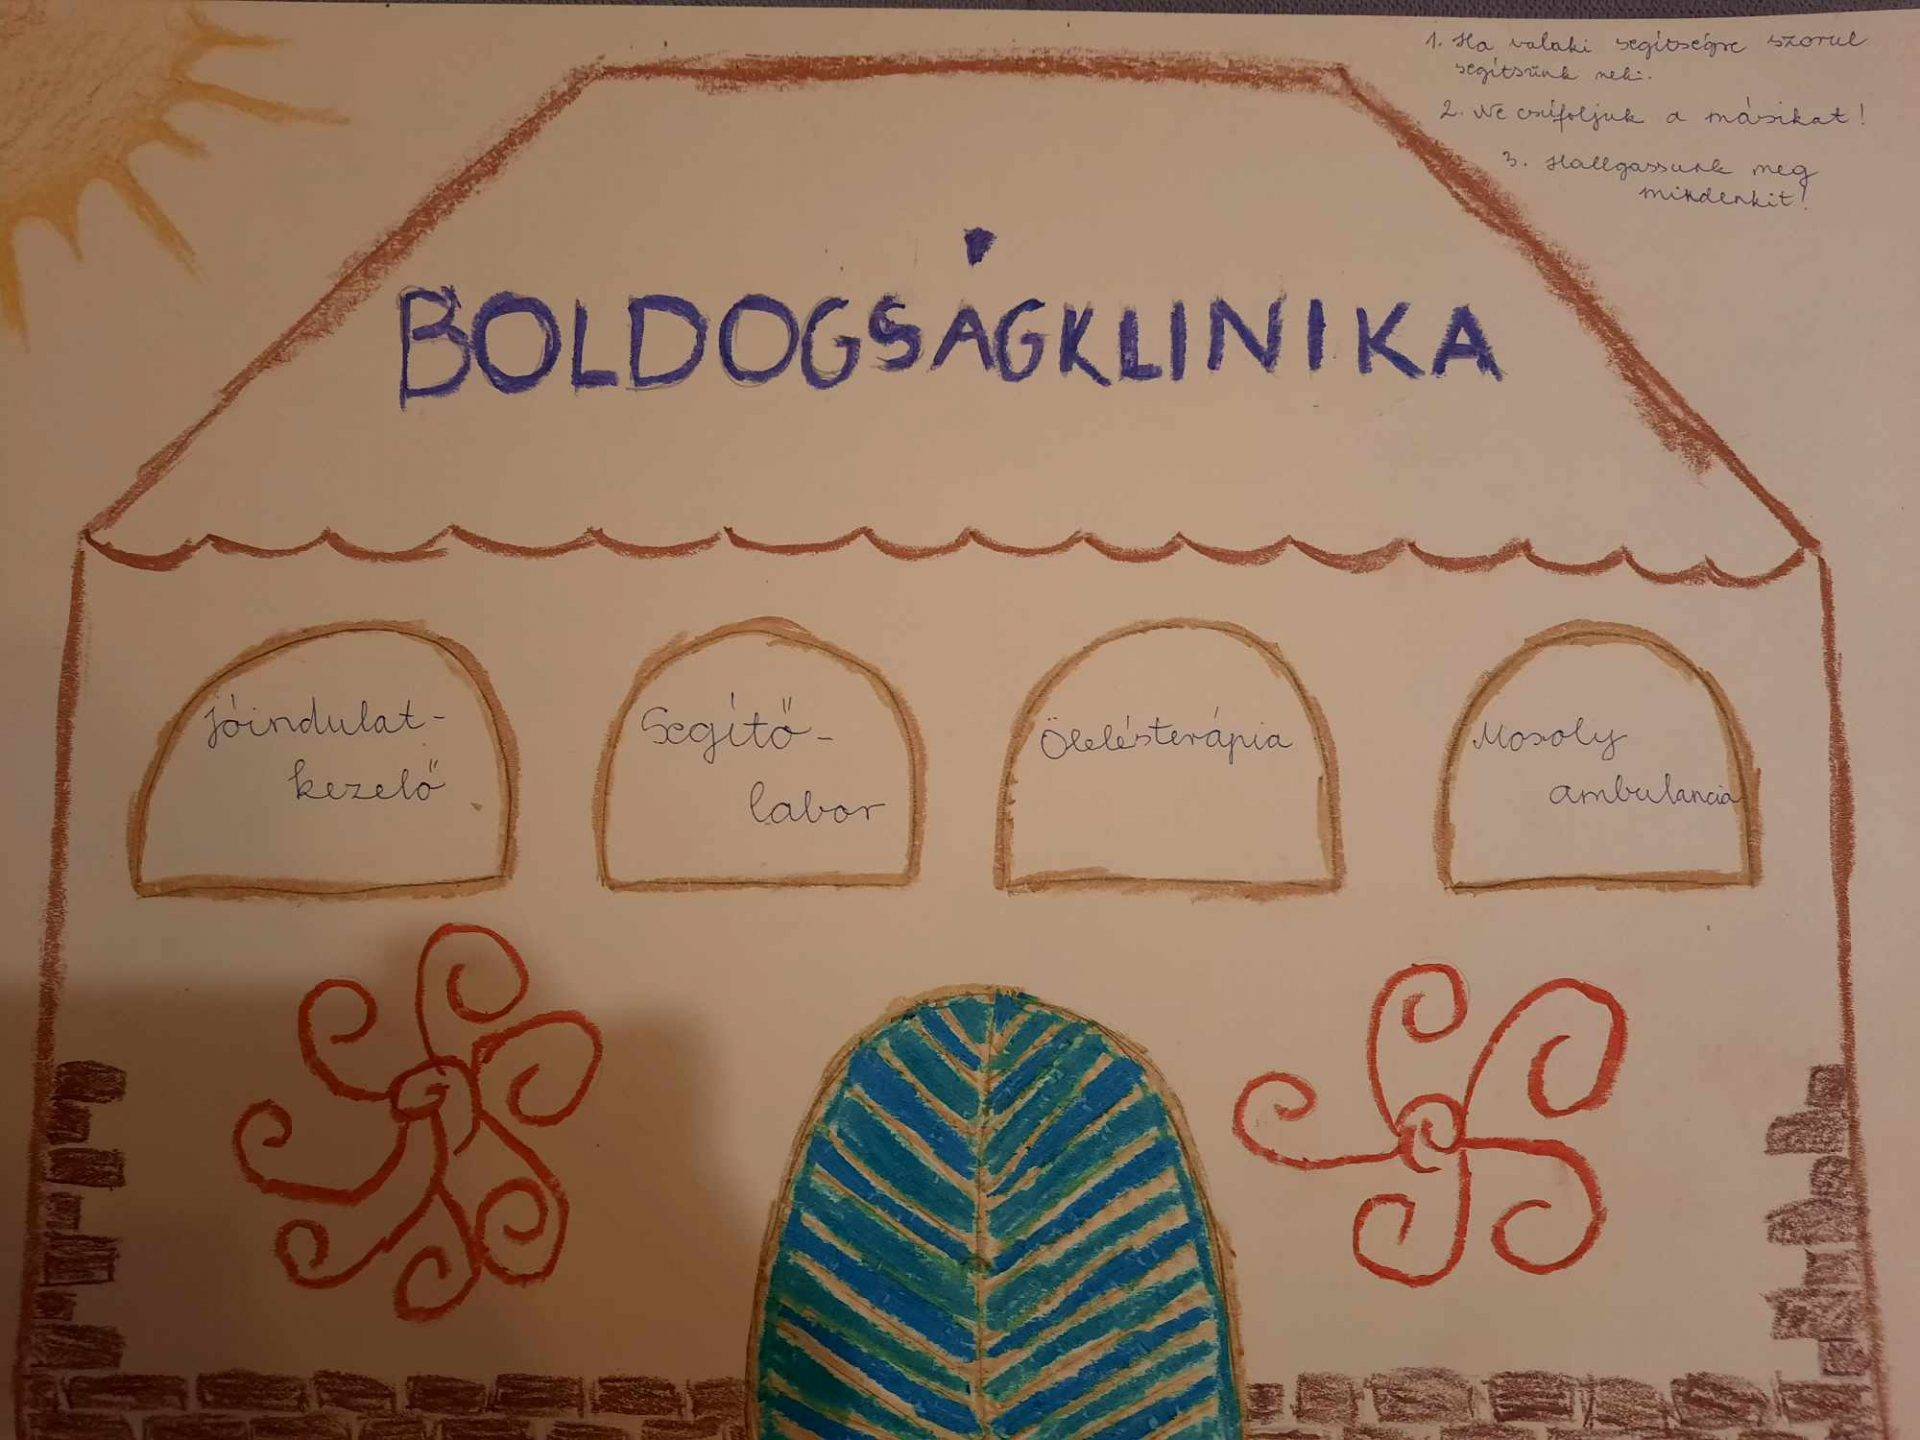 1. Ha valaki segítségre szorul
segítsünk neki.
2. Ne csúfoljuk a másikat!
3. Hallgassunk meg
mindenkit!
BOLDOGSÁGKLINIKA
Jóindulat-
kezelő
Segítő-
labor
Ölelésterápia
Mosoly
ambulancia